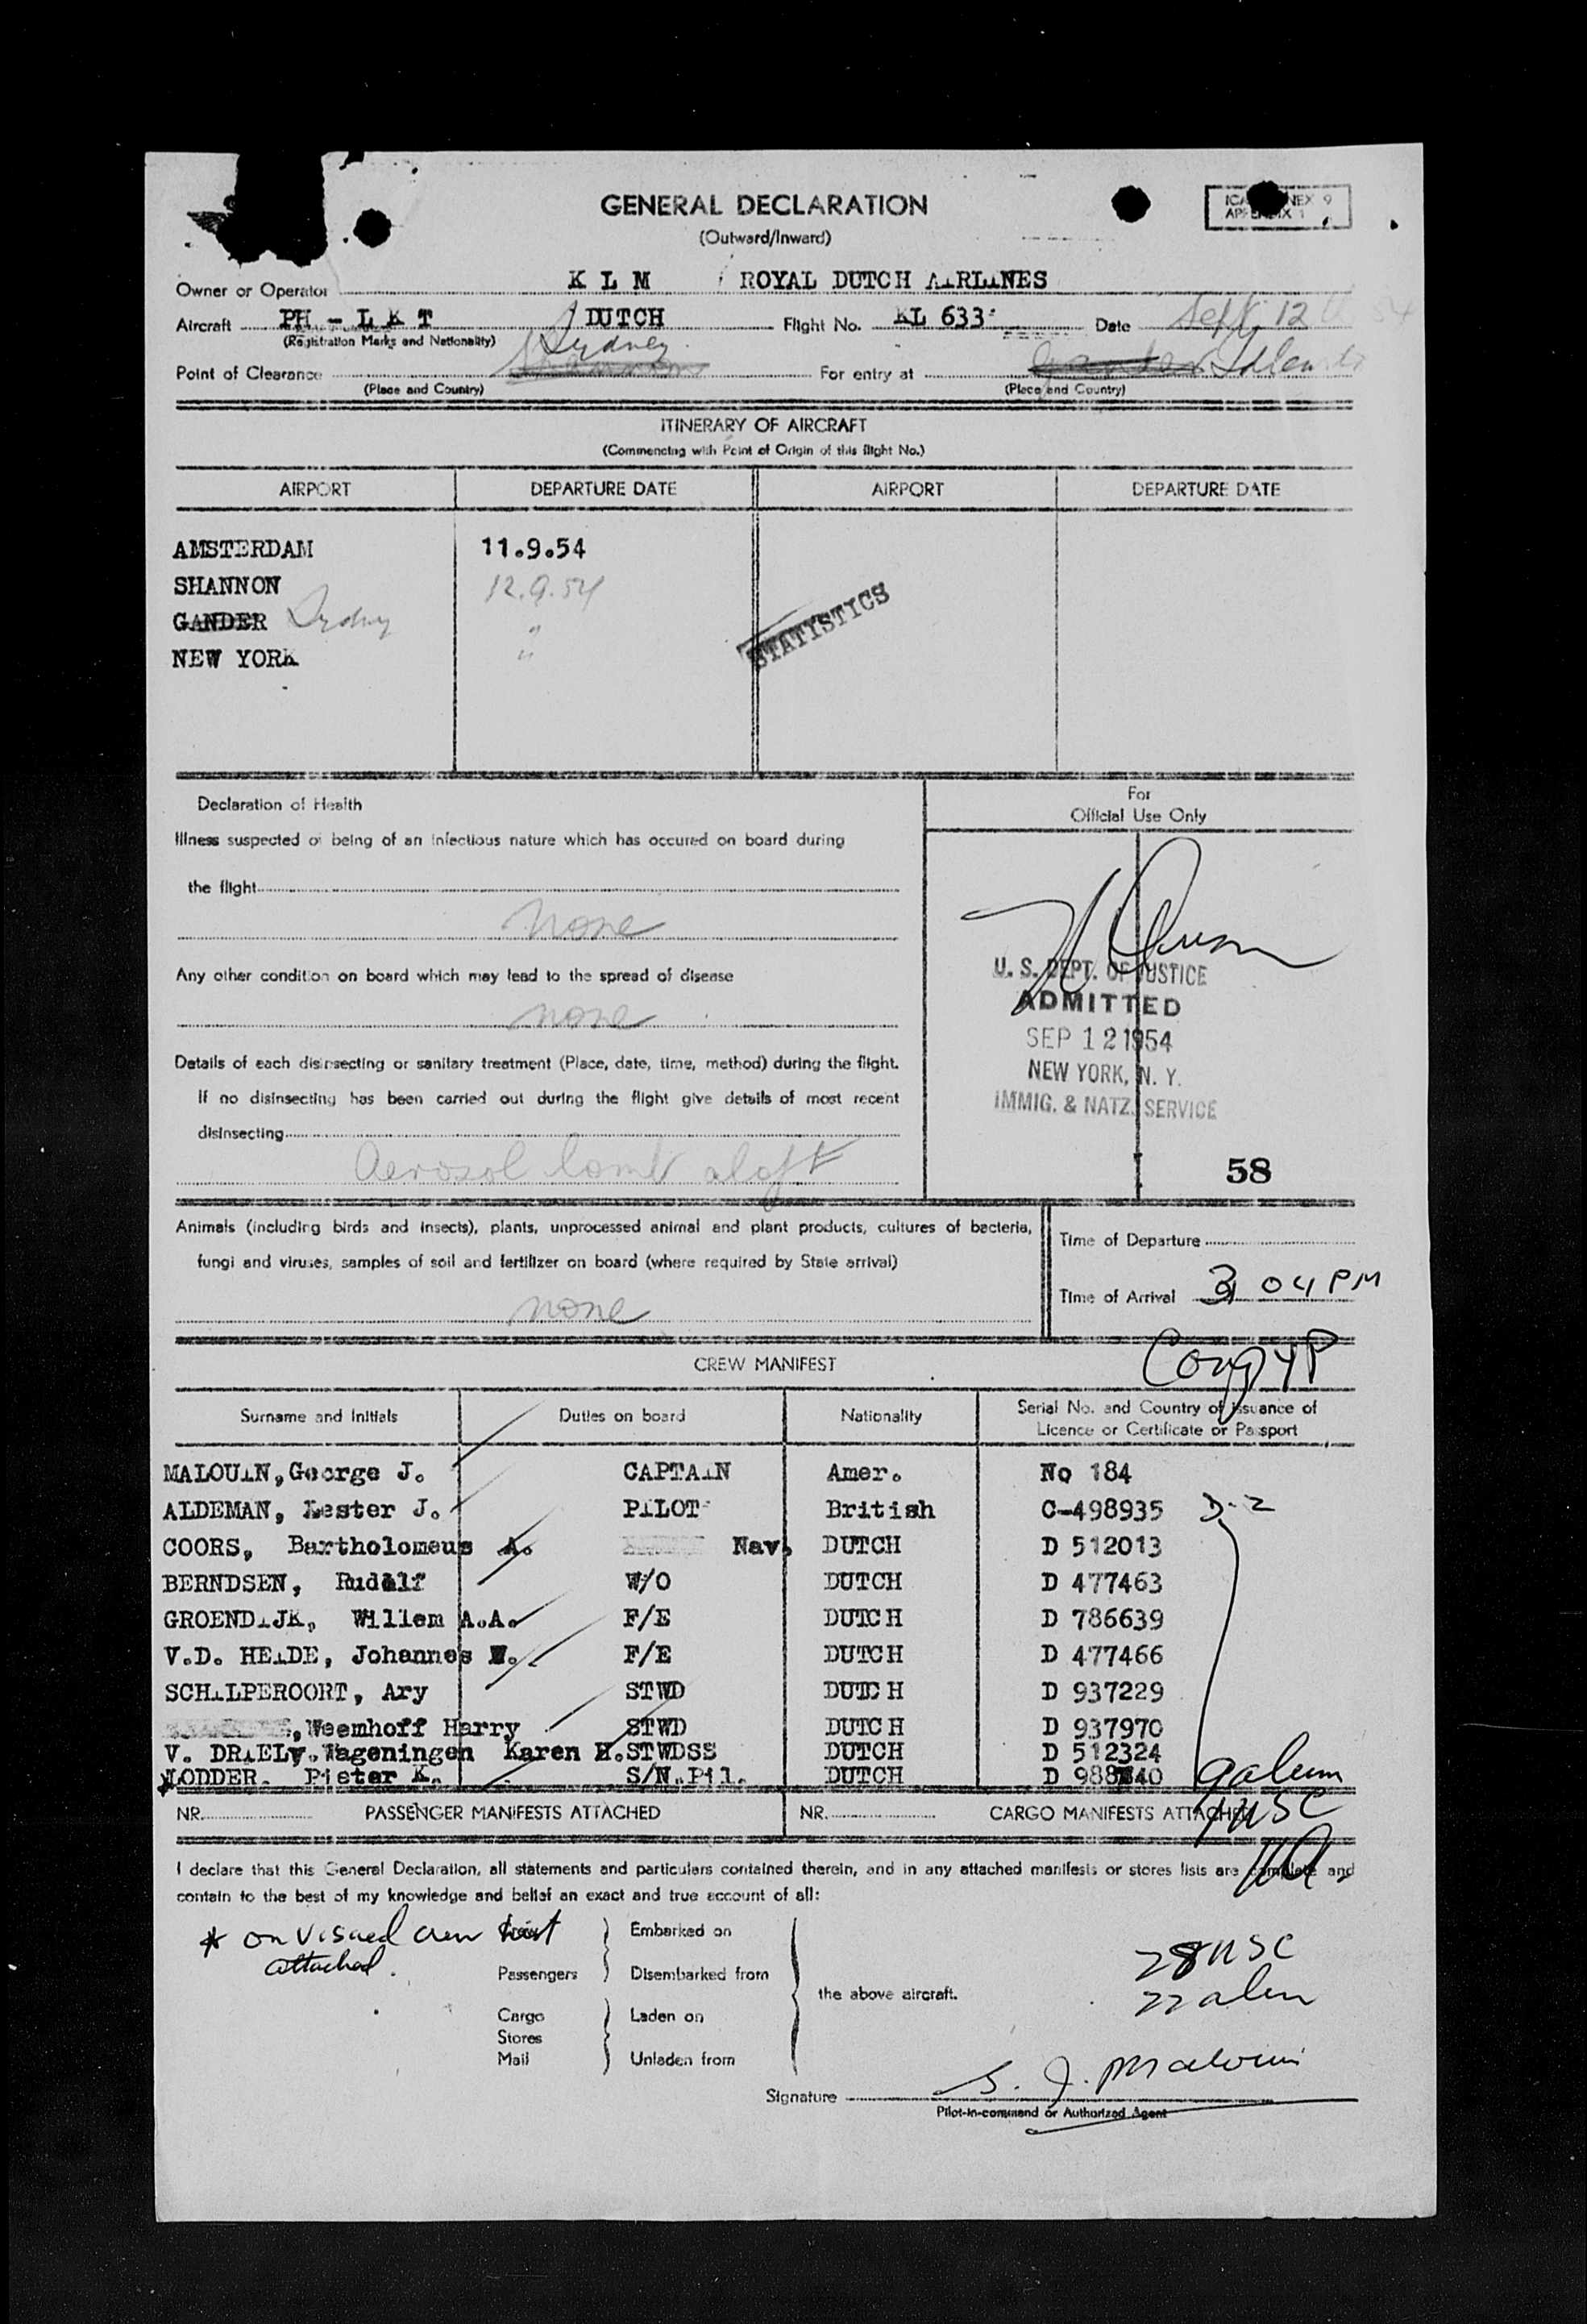 GENERAL DECLARATION
(Outward/Inward)
Owner or Operator K L M ROYAL DUTCH AIRLINES
Aircraft PH - L K T DUTCH Flight No. KL 633 Date Sept. 12 54
(Registration Marks and Nationality)
Sydney
Point of Clearance For entry at
(Place and Country) (Place and Country)
ITINERARY OF AIRCRAFT
(Commencing with Point of Origin of this flight No.)
AIRPORT DEPARTURE DATE AIRPORT DEPARTURE DATE
AMSTERDAM 11.9.54
SHANNON 12.9.54
GANDER Sydney "
NEW YORK "
STATISTICS
Declaration of Health
Illness suspected of being of an infectious nature which has occured on board during
the flight
none
Any other condition on board which may lead to the spread of disease
none
Details of each disinsecting or sanitary treatment (Place, date, time, method) during the flight.
If no disinsecting has been carried out during the flight give details of most recent
disinsecting
Aerosol bomb aloft
For
Official Use Only
U. S. DEPT. OF JUSTICE
ADMITTED
SEP 12 1954
NEW YORK, N. Y.
IMMIG. & NATZ. SERVICE
58
Animals (including birds and insects), plants, unprocessed animal and plant products, cultures of bacteria,
fungi and viruses, samples of soil and fertilizer on board (where required by State arrival)
none
Time of Departure
Time of Arrival 3 04 PM
CREW MANIFEST
Surname and Initials Duties on board Nationality Serial No. and Country of Issuance of
Licence or Certificate or Passport
MALOUIN, George J. CAPTAIN Amer. No 184
ALDEMAN, Lester J. PILOT British C-498935 D-2
COORS, Bartholomeus A. Nav. DUTCH D 512013
BERNDSEN, Rudolf W/O DUTCH D 477463
GROENDIJK, Willem A.A. F/E DUTCH D 786639
V.D. HEIDE, Johannes W. F/E DUTCH D 477466
SCHILPEROORT, Ary STWD DUTCH D 937229
, Weemhoff Harry STWD DUTCH D 937970
V. Wageningen Karen H. STWDSS DUTCH D 512324
*LODDER. Pieter K. S/N.Pil. DUTCH D 988 40
9 alien
1 USC
NR. PASSENGER MANIFESTS ATTACHED NR. CARGO MANIFESTS ATTACHED
I declare that this General Declaration, all statements and particulars contained therein, and in any attached manifests or stores lists are complete and
contain to the best of my knowledge and belief an exact and true account of all:
* on visaed crew list
attached.
Crew Embarked on
Passengers Disembarked from
the above aircraft.
Cargo Laden on
Stores
Mail Unladen from
28 USC
22 alien
Signature G. J. Malouin
Pilot-in-command or Authorized Agent